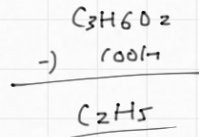 C3H6O2
-) COOH
C2H5